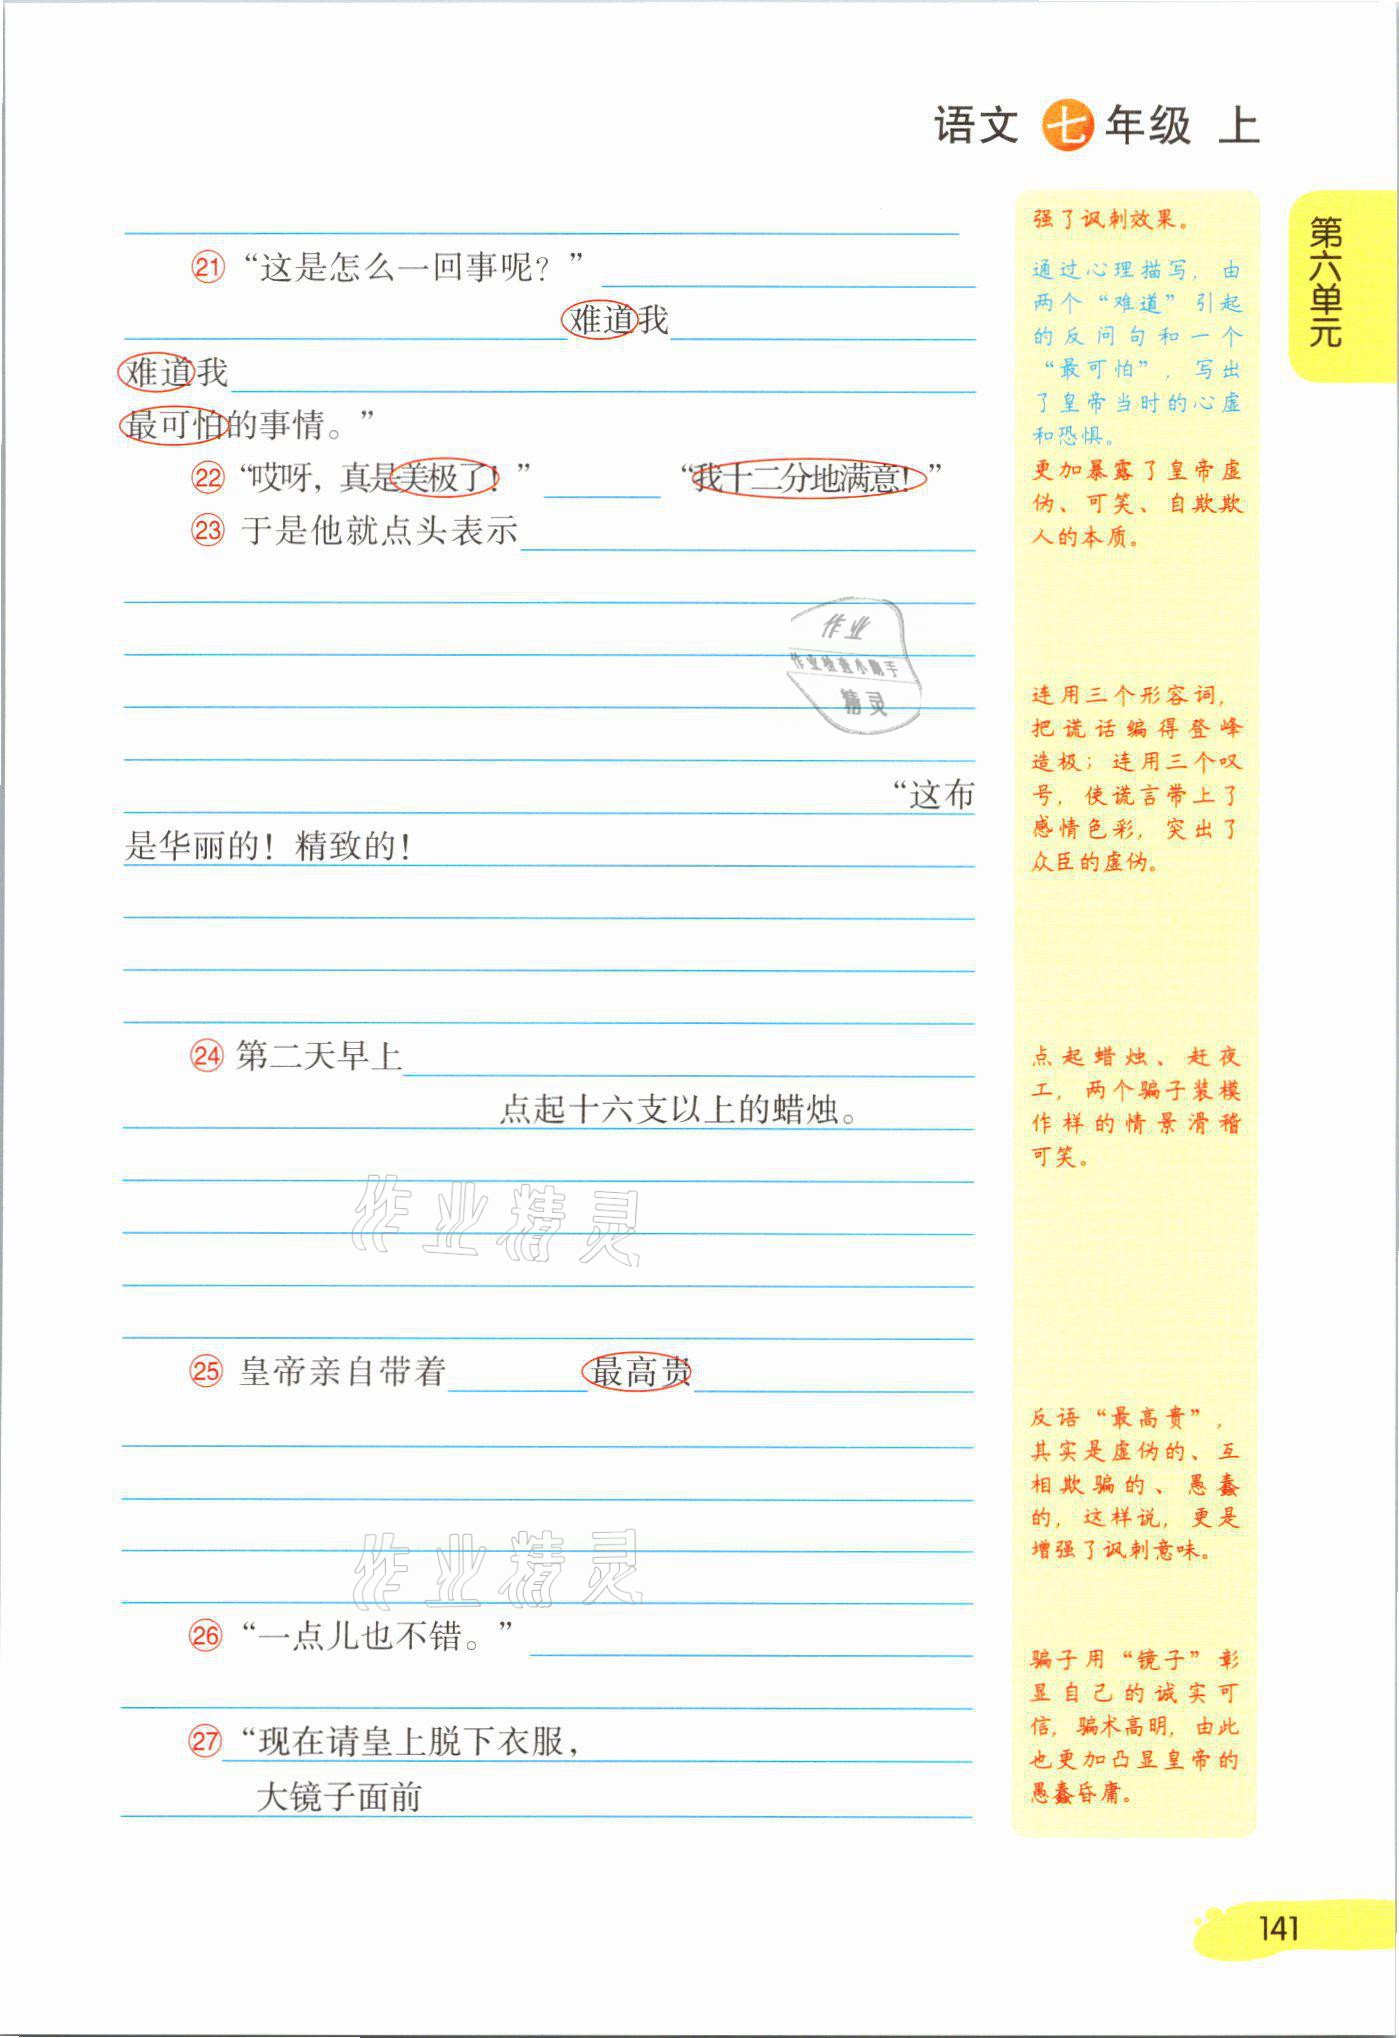 语文 七 年级 上
第六单元
㉑ “这是怎么一回事呢？”
难道我
难道我
最可怕的事情。”
㉒ “哎呀，真是美极了！” “我十二分地满意！”
㉓ 于是他就点头表示
“这布
是华丽的！精致的！
㉔ 第二天早上
点起十六支以上的蜡烛。
㉕ 皇帝亲自带着 最高贵
㉖ “一点儿也不错。”
㉗ “现在请皇上脱下衣服，
大镜子面前
强了讽刺效果。
通过心理描写，由
两个“难道”引起
的反问句和一个
“最可怕”，写出
了皇帝当时的心虚
和恐惧。
更加暴露了皇帝虚
伪、可笑、自欺欺
人的本质。
连用三个形容词，
把谎话编得登峰
造极；连用三个叹
号，使谎言带上了
感情色彩，突出了
众臣的虚伪。
点起蜡烛、赶夜
工，两个骗子装模
作样的情景滑稽
可笑。
反语“最高贵”，
其实是虚伪的、互
相欺骗的、愚蠢
的，这样说，更是
增强了讽刺意味。
骗子用“镜子”彰
显自己的诚实可
信，骗术高明，由此
也更加凸显皇帝的
愚蠢昏庸。
作业
作业检查小助手
精灵
作业精灵
作业精灵
141